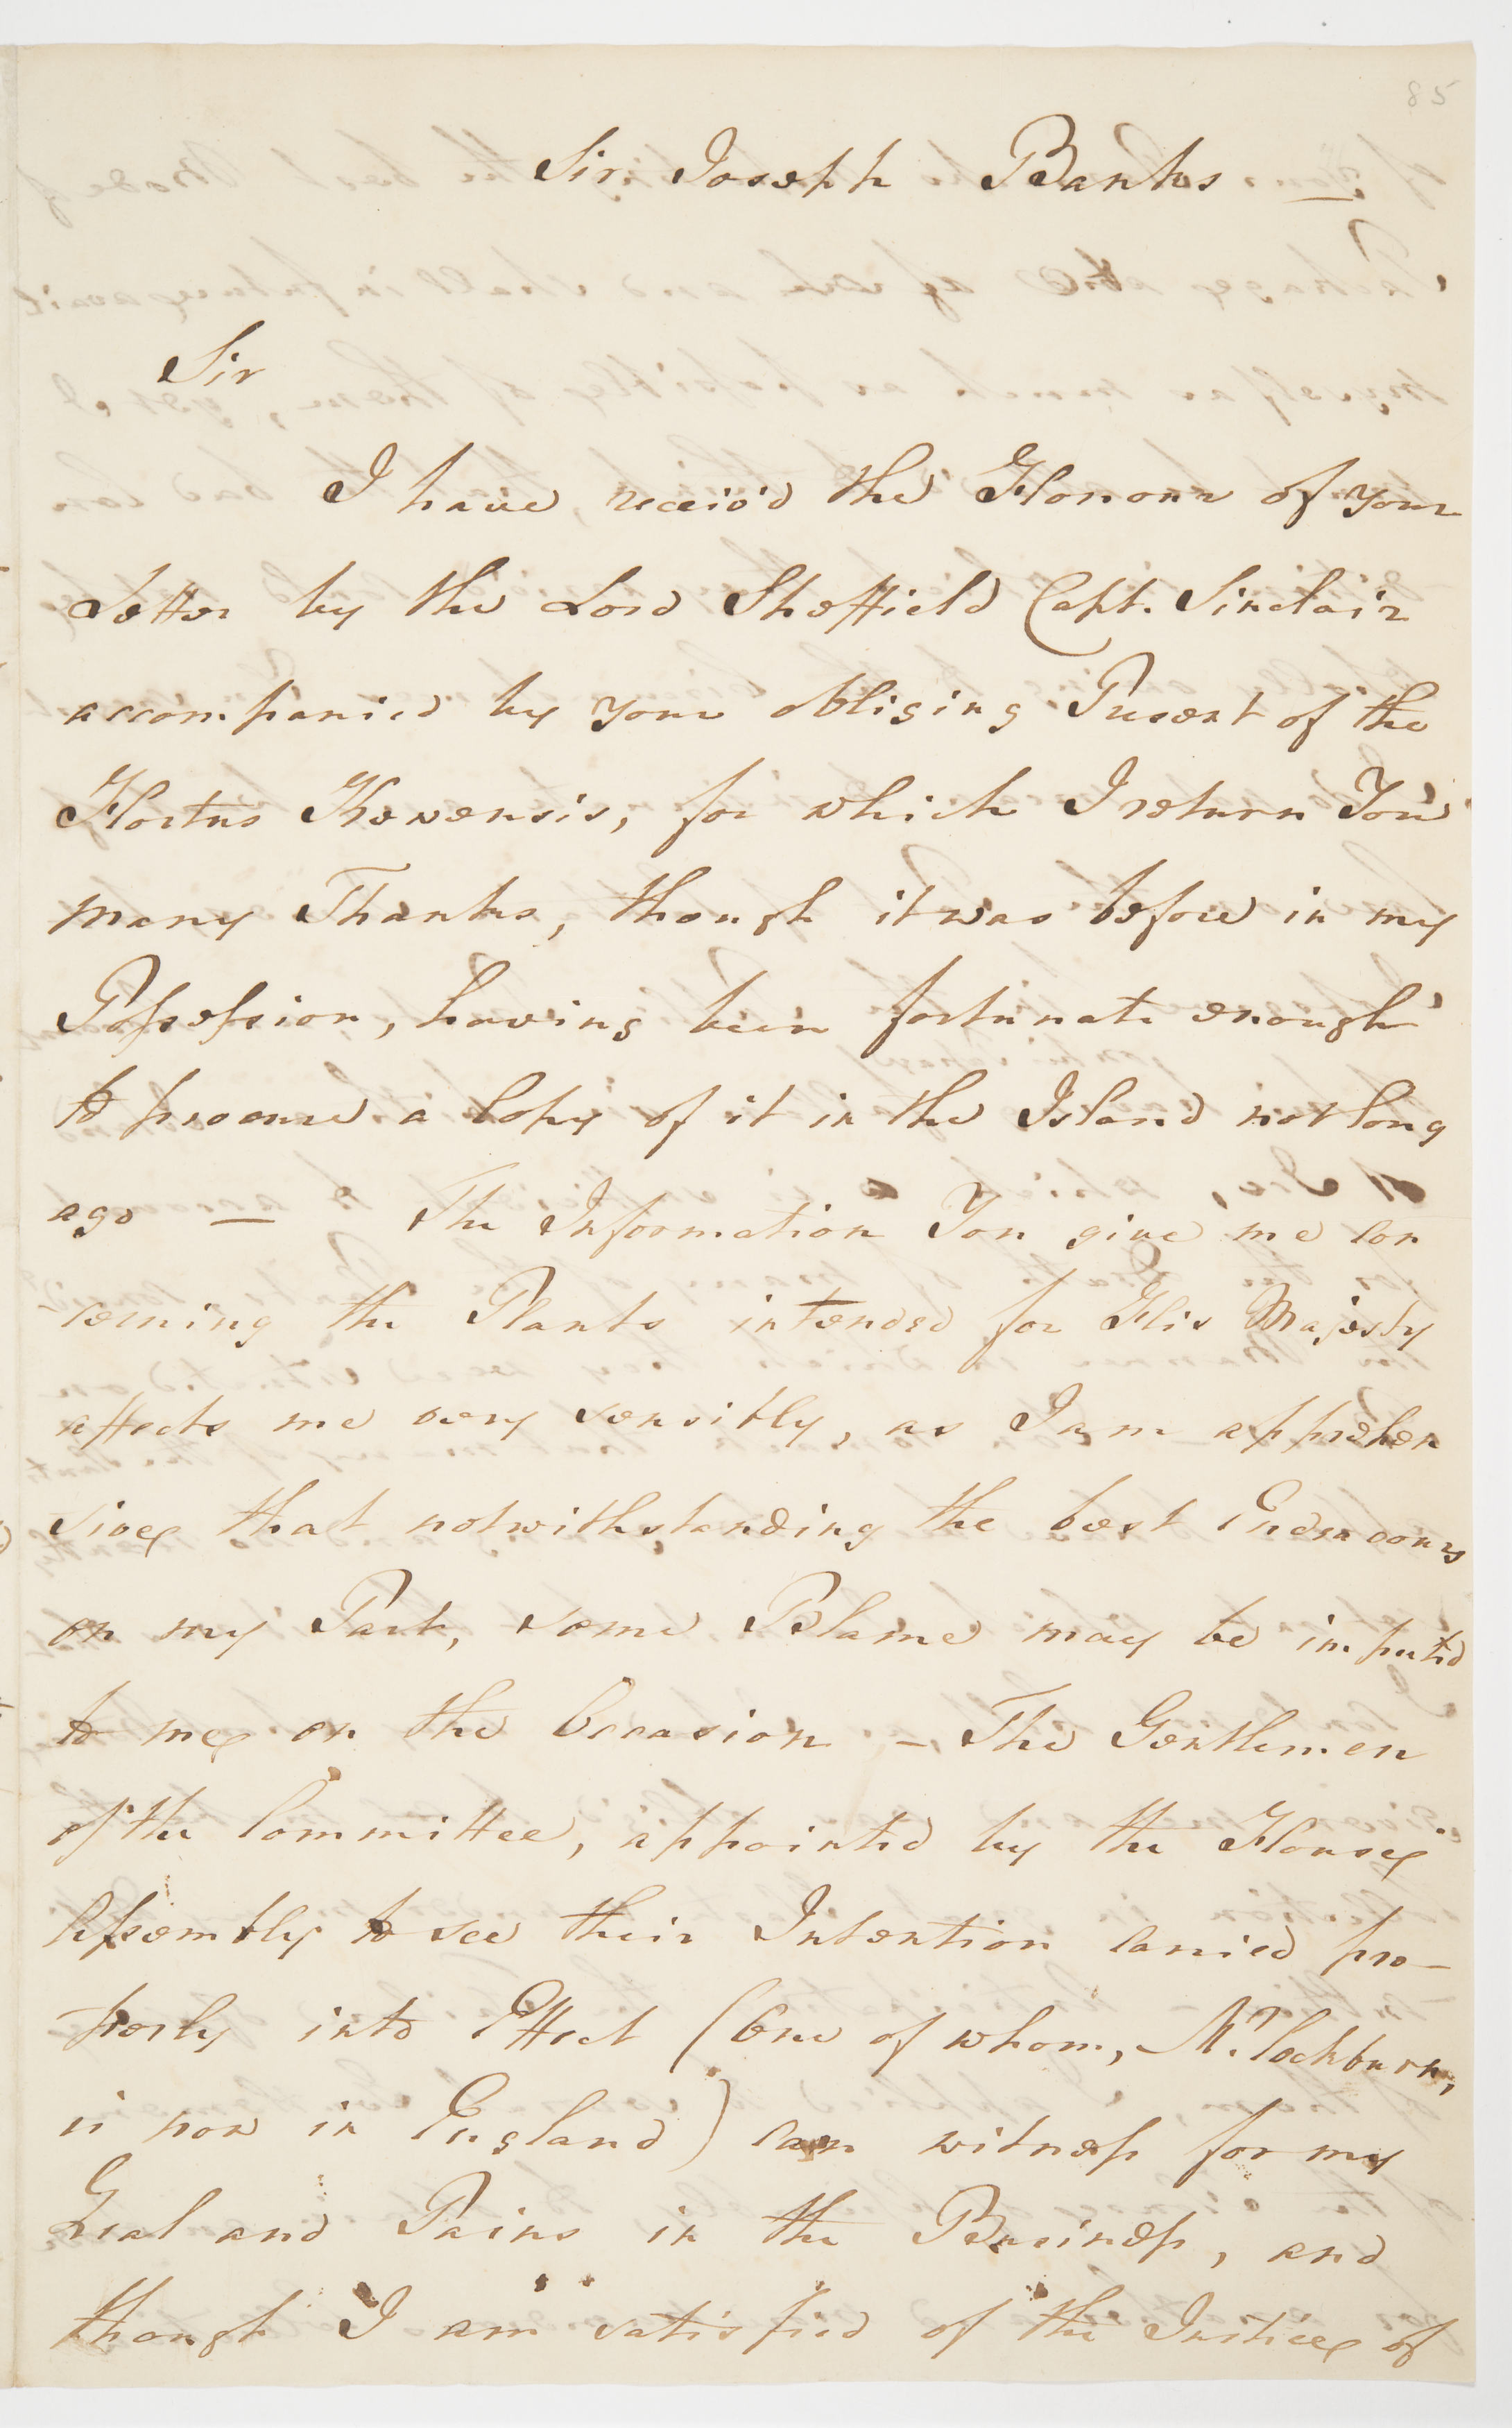 85
Sir Joseph Banks —
Sir
I have receiv'd the Honour of your
Letter by the Lord Sheffield Capt. Sinclair
accompanied by your obliging Present of the
Hortus Kewensis, for which I return You
many Thanks, though it was before in my
Possession, having been fortunate enough
to procure a Copy of it in the Island not long
ago — The Information You give me con
-cerning the Plants intended for His Majesty
affects me very sensibly, as I am apprehen
sive that notwithstanding the best Endeavours
on my Part, some Blame may be imputed
to me on the Occasion — The Gentlemen
of the Committee, appointed by the House
Assembly to see their Intention carried pro-
-perly into Effect (One of whom, Mr. Cockburn,
is now in England) can witness for my
Zeal and Pains in the Business, and
though I am satisfied of the Justice of